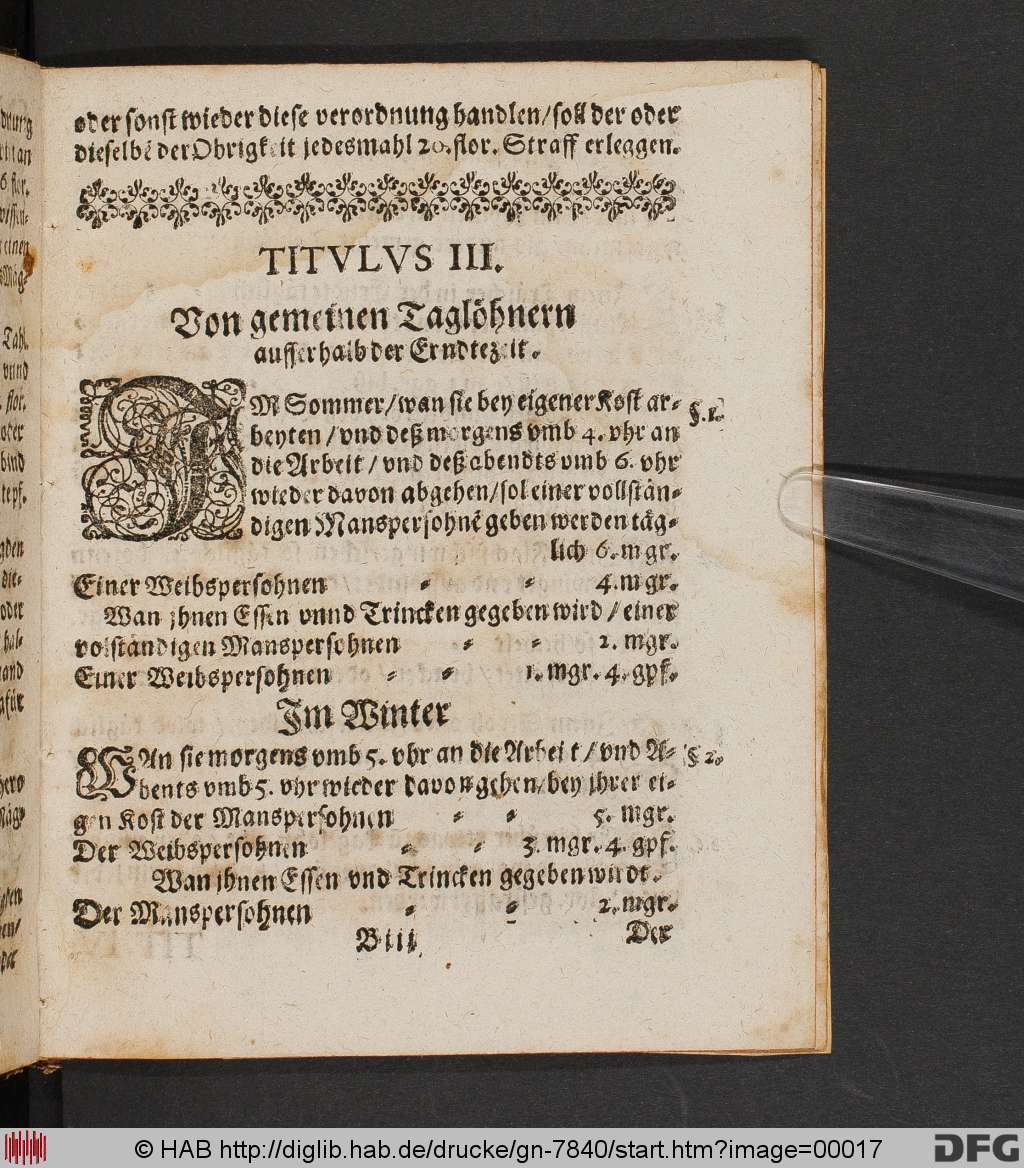 oder sonst wieder diese verordnung handlen/soll der oder
dieselbē der Obrigkeit jedesmahl 20. flor. Straff erleggen.
TITVLVS III.
Von gemeinen Taglöhnern
ausserhalb der Erndtezeit.
IM Sommer/wan sie bey eigener Kost ar⸗ §. 1.
beyten/vnd deß morgens vmb 4. vhr an
die Arbeit/vnd deß abendts vmb 6. vhr
wieder davon abgehen/sol einer vollstän⸗
digen Manspersohnē geben werden täg⸗
lich 6. mgr.
Einer Weibspersohnen ⸗ ⸗ 4. mgr.
Wan jhnen Essen vnnd Trincken gegeben wird/einer
volständigen Manspersohnen ⸗ ⸗ 2. mgr.
Einer Weibspersohnen ⸗ ⸗ 1. mgr. 4. gpf.
Im Winter
WAn sie morgens vmb 5. vhr an die Arbeit/vnd A⸗ § 2.
bents vmb 5. vhr wieder davon gehen/bey jhrer ei⸗
gen Kost der Manspersohnen ⸗ ⸗ 5. mgr.
Der Weibspersohnen ⸗ ⸗ 3. mgr. 4. gpf.
Wan jhnen Essen vnd Trincken gegeben wirdt.
Der Manspersohnen ⸗ ⸗ 2. mgr.
B iij Der
© HAB http://diglib.hab.de/drucke/gn-7840/start.htm?image=00017
DFG